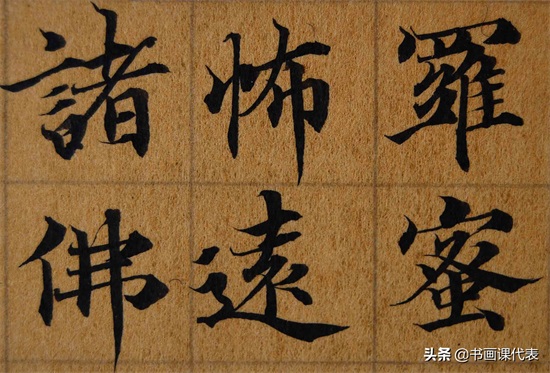 羅蜜
怖遠
諸佛
头条 @书画课代表